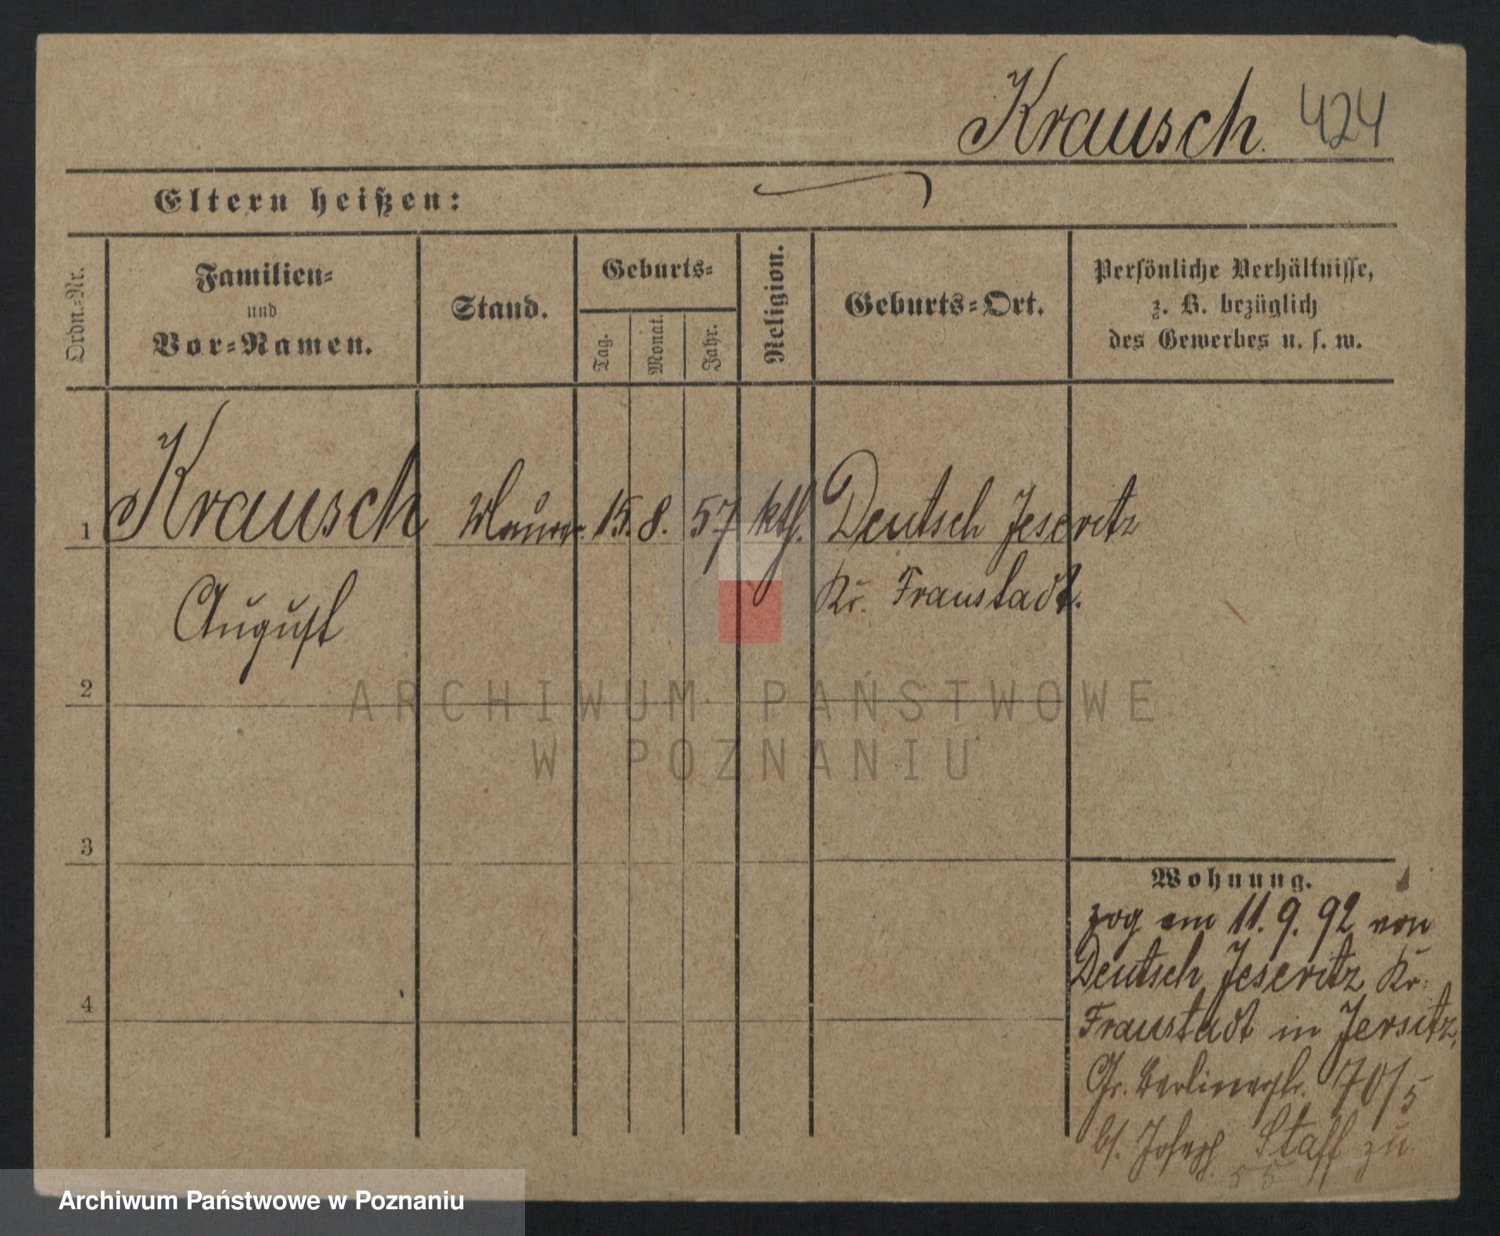 Krausch. 424
Eltern heißen:
Ordn.-Nr.
Familien-
und
Vor-Namen.
Stand.
Geburts-
Tag.
Monat.
Jahr.
Religion.
Geburts-Ort.
Persönliche Verhältnisse,
z. B. bezüglich
des Gewerbes u. s. w.
1 Krausch Maurer. 15. 8. 57 kth. Deutsch Jeseritz
August Kr. Fraustadt.
2
ARCHIWUM PAŃSTWOWE
W POZNANIU
3
Wohnung.
zog am 11. 9. 92 von
Deutsch Jeseritz Kr.
4
Fraustadt in Jersitz,
Gr. Berlinerstr. 70/5
bf. Joseph Staff zu.
55
Archiwum Państwowe w Poznaniu